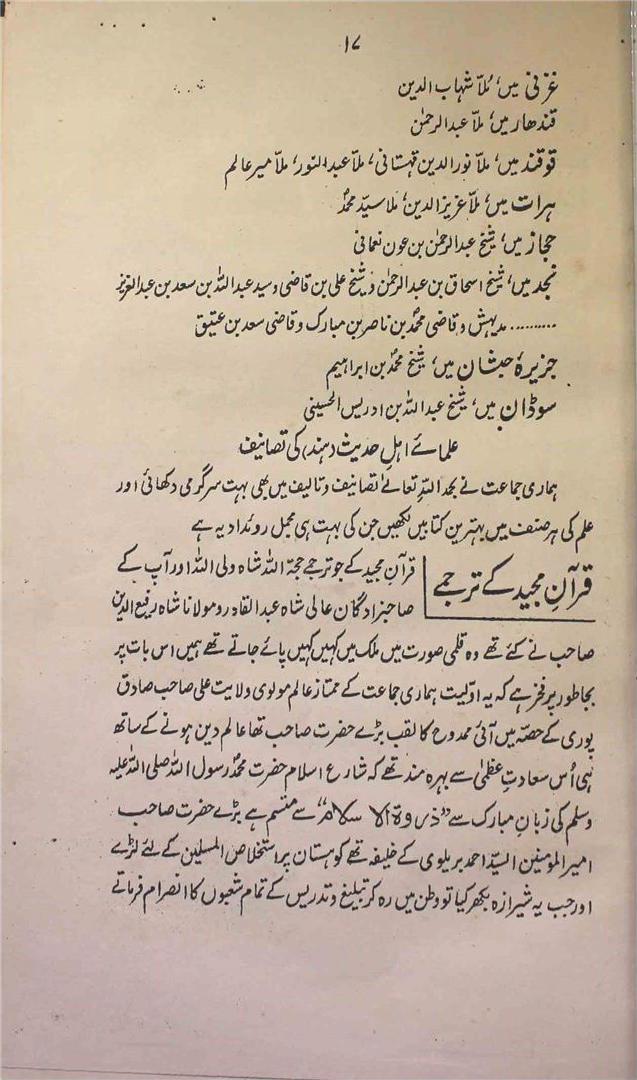 ۱۷
غزنی میں، مُلّا شہاب الدین
قندھار میں، ملا عبدالرحمٰن
قوقند میں، ملا نور الدین قہستانی، ملا عبد النور، ملا میر عالم
ہرات میں، ملّا عزیز الدین، ملا سیّد محمدؐ
حجاز میں، شیخ عبد الرحمٰن بن عون نعمانی
نجد میں، شیخ اسحاق بن عبد الرحمٰن و شیخ علی بن قاضی و سید عبد اللہ بن سعد بن عبد العزیز
......... مدہش و قاضی محمدؐ بن ناصر بن مبارک و قاضی سعد بن عتیق
جزیرۂ حبشان میں، شیخ محمدؐ بن ابراہیم
سوڈان میں، شیخ عبد اللہ بن ادریس الحسینی
علمائے اہل حدیث (ہند) کی تصانیف
ہماری جماعت نے بحمد اللہِ تعالےٰ تصانیف و تالیف میں بھی بہت سرگرمی دکھائی اور
علم کی ہر صنف میں بہترین کتابیں لکھیں جن کی بہت ہی مجمل روئداد یہ ہے
قرآنِ مجید کے ترجمے
قرآن مجید کے جو ترجمے حجۃ اللہ شاہ ولی اللہ اور آپ کے
صاحبزادگان عالی شاہ عبد القادر و مولانا شاہ رفیع الدین
صاحب نے کئے تھے وہ قلمی صورت میں ملک میں کہیں کہیں پائے جاتے تھے ہمیں اس بات پر
بجا طور پر فخر ہے کہ یہ اوّلیت ہماری جماعت کے ممتاز عالم مولوی ولایت علی صاحب صادق
پوری کے حصّہ میں آئی ممدوح کا لقب بڑے حضرت صاحب تھا عالم دین ہونے کے ساتھ
ہی اُس سعادتِ عظمیٰ سے بہرہ مند تھے کہ شارع اسلام حضرت محمدؐ رسول اللہ صلی اللہ علیہ
وسلم کی زبانِ مبارک سے "ذروۃ الاسلام" سے متسم ہے بڑے حضرت صاحب
امیر المؤمنین السیّد احمد بریلوی کے خلیفہ تھے کوہستان پر استخلاص المسلمین کے لئے لڑے
اور جب یہ شیرازہ بکھر گیا تو وطن میں رہ کر تبلیغ و تدریس کے تمام شعبوں کا انصرام فرماتے